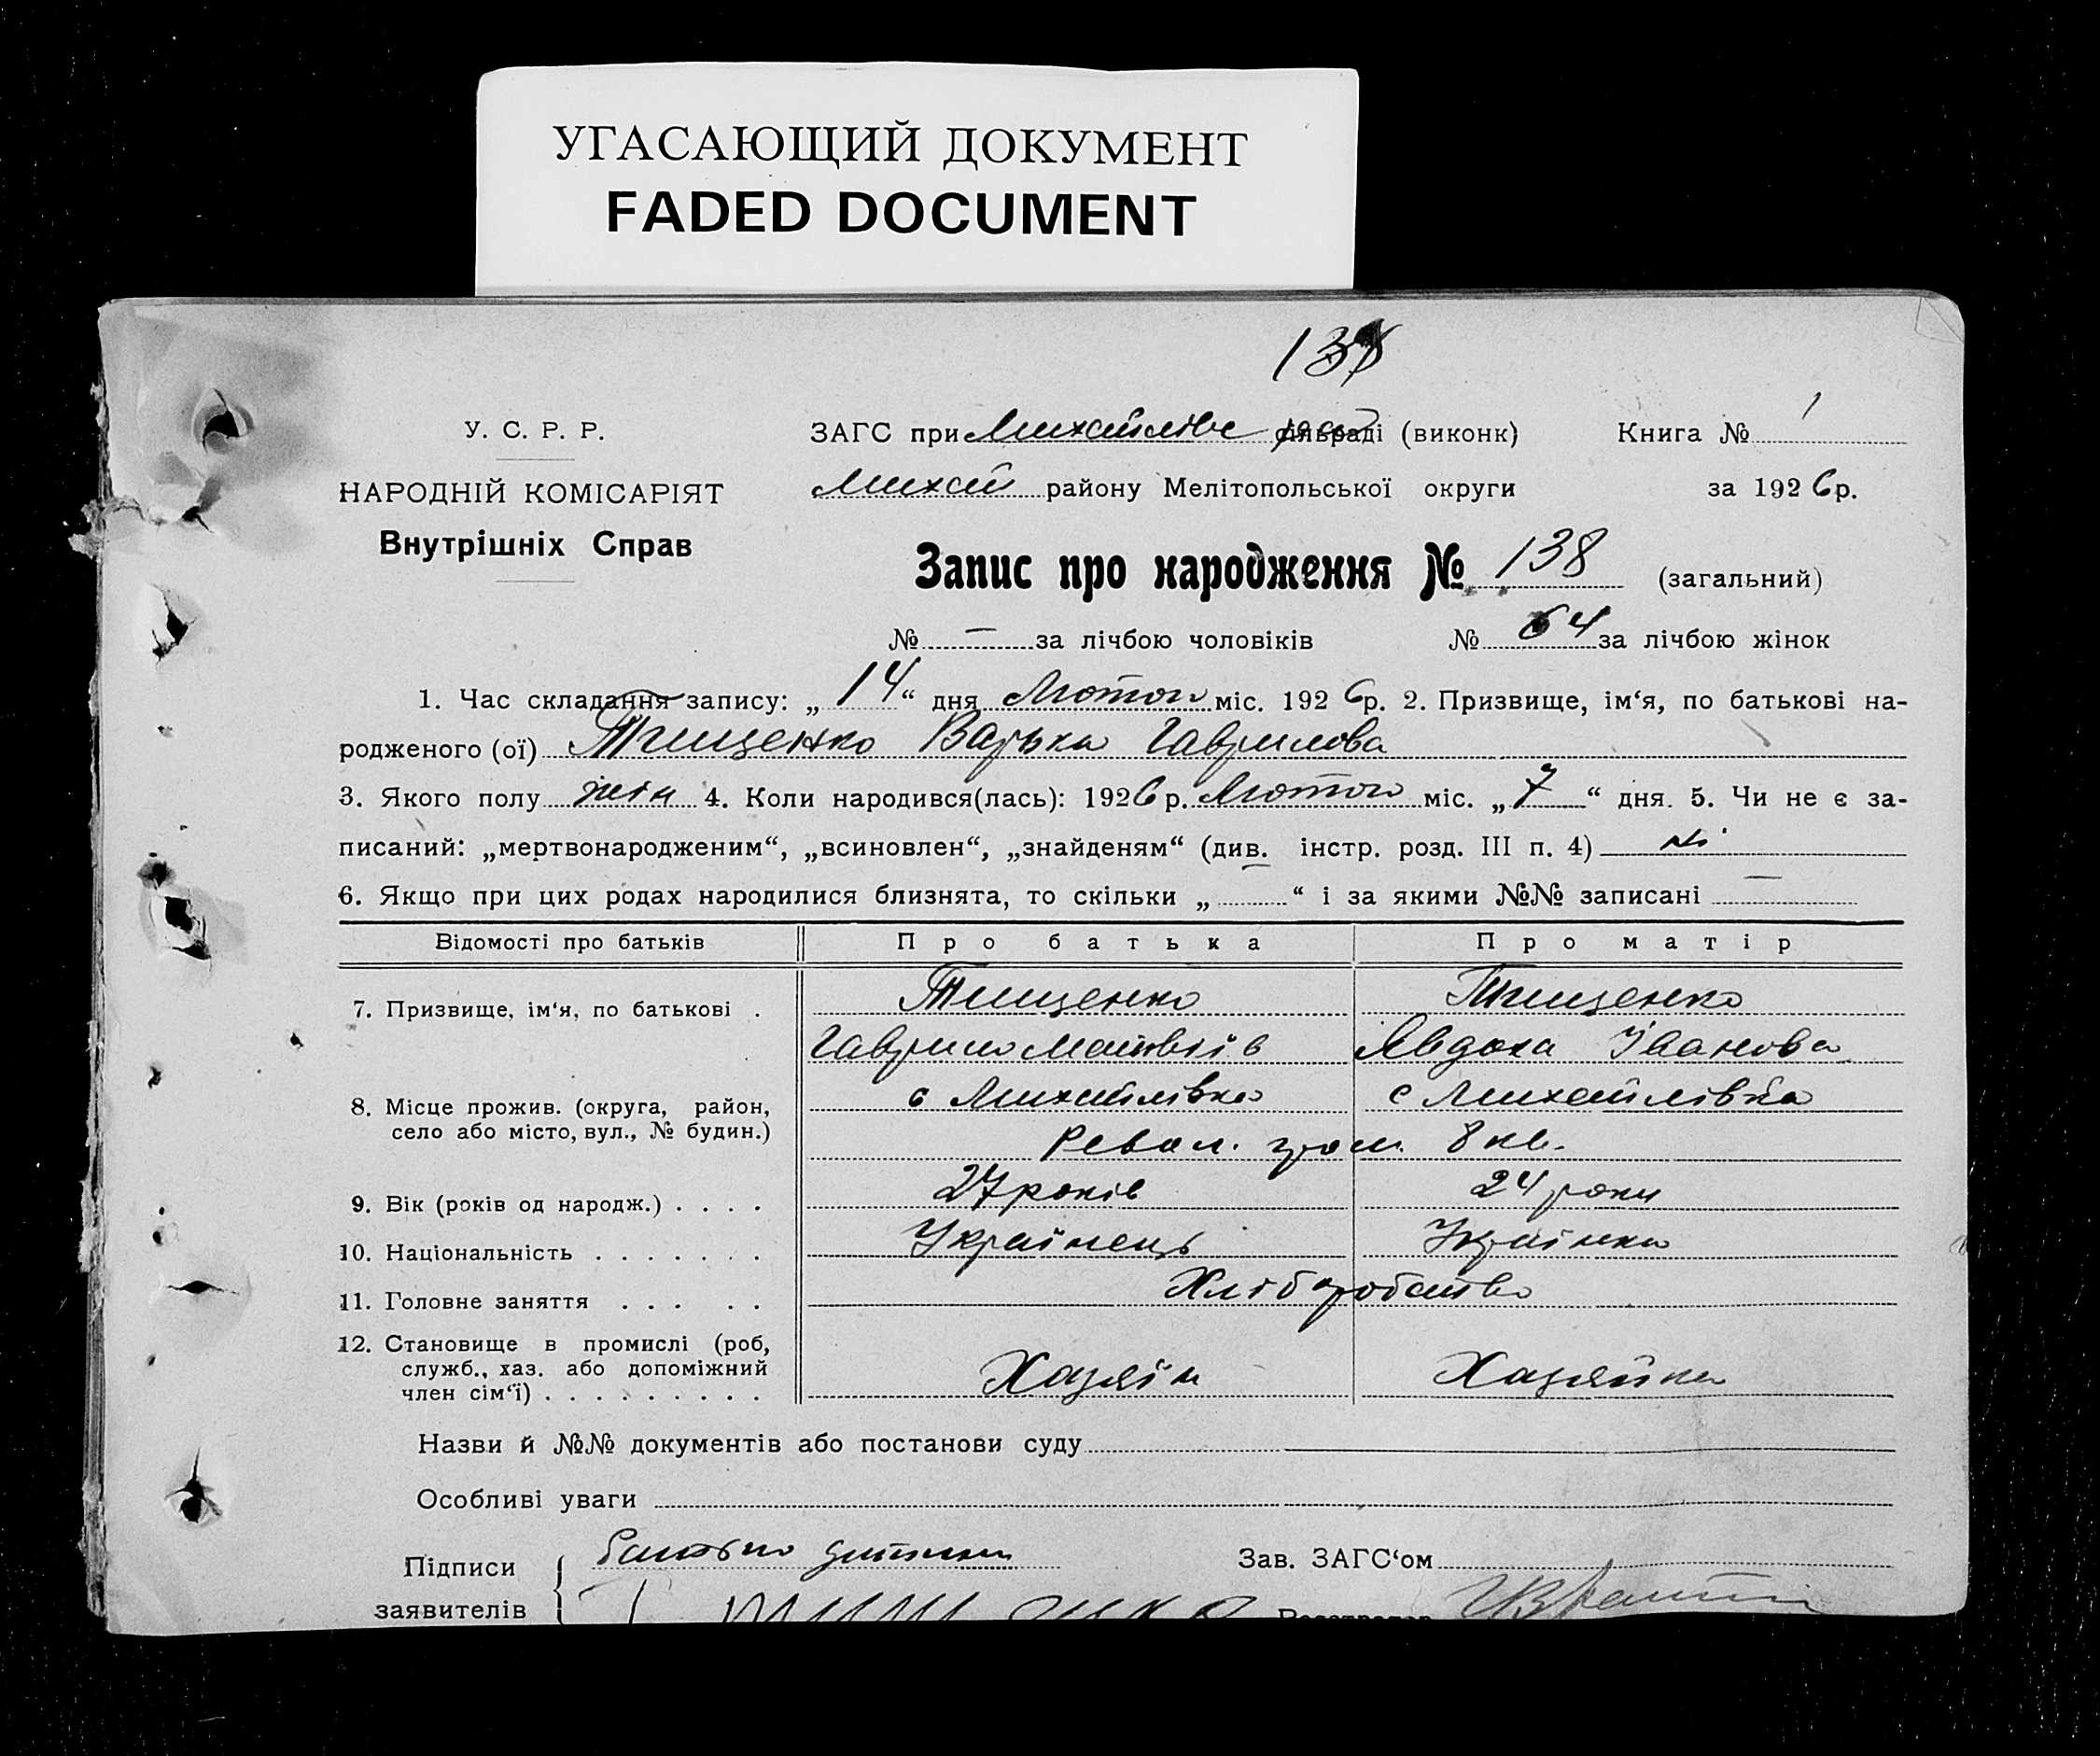 УГАСАЮЩИЙ ДОКУМЕНТ
FADED DOCUMENT
138
У. С. Р. Р.
НАРОДНІЙ КОМІСАРІЯТ
Внутрішніх Справ
ЗАГС при Михайлівс сільраді (виконк) Книга № 1
Михай району Мелітопольської округи за 1926 р.
Запис про народження № 138 (загальний)
№ — за лічбою чоловіків № 64 за лічбою жінок
1. Час складання запису: „14“ дня Лютого міс. 1926 р. 2. Призвище, ім‘я, по батькові на-
родженого (ої) Тищенко Варька Гаврилова
3. Якого полу жін 4. Коли народився(лась): 1926 р. Лютого міс. „7“ дня. 5. Чи не є за-
писаний: „мертвонародженим“, „всиновлен“, „знайденям“ (див. інстр. розд. III п. 4) ні
6. Якщо при цих родах народилися близнята, то скільки „—“ і за якими №№ записані —
Відомості про батьків Про батька Про матір
7. Призвище, ім‘я, по батькові . Тищенко Тищенко
Гаврило Матвіїв Явдоха Іванова
8. Місце прожив. (округа, район, с Михайлівка с Михайлівка
село або місто, вул., № будин.) Револ. гром. 8 кв.
9. Вік (років од народж.) . . . . 27 років 24 роки
10. Національність . . . . . . . Українець Українка
11. Головне заняття . . . . . Хліборобство
12. Становище в промислі (роб,
служб., хаз. або допоміжний
член сім‘ї) . . . . . . . . . Хазяїн Хазяйка
Назви й №№ документів або постанови суду
Особливі уваги
Підписи Батько дитини Зав. ЗАГС‘ом
заявителів Тищенко Реєстратор